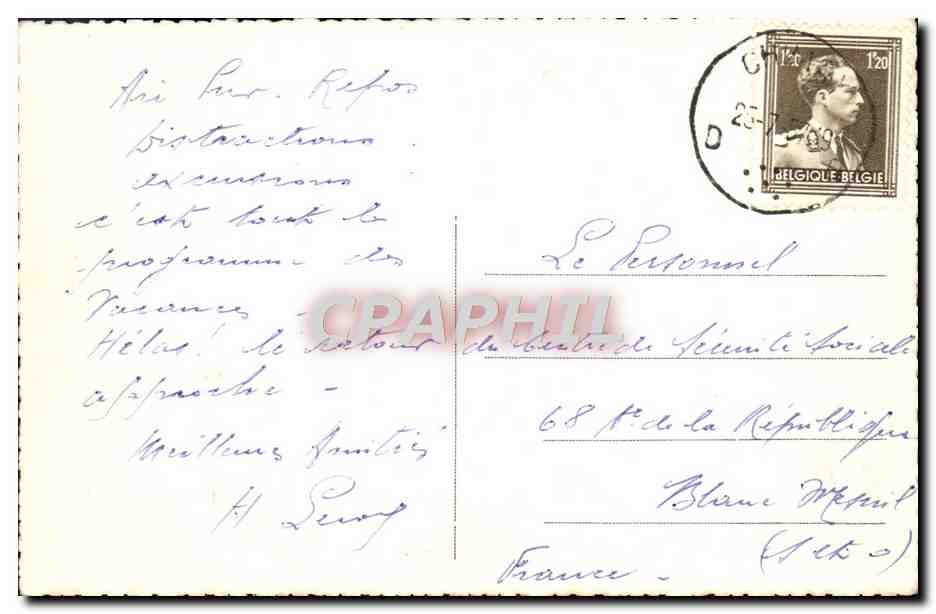 Air Pur - Repos
Distractions
excursions
c'est tout le
programme des
Vacances -
Hélas! le retour
approche -
Meilleures Amitiés
H
Le Personnel
du Centre de Sécurité Sociale
68 Ae de la République
Blanc Mesnil
(S et O)
France -
1.20 1.20
BELGIQUE-BELGIE
D
CPAPHIL